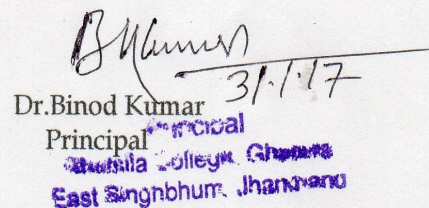 B Kumar
31.1.17
Dr.Binod Kumar
Principal
Principal
College,
East Singhbhum, Jharkhand